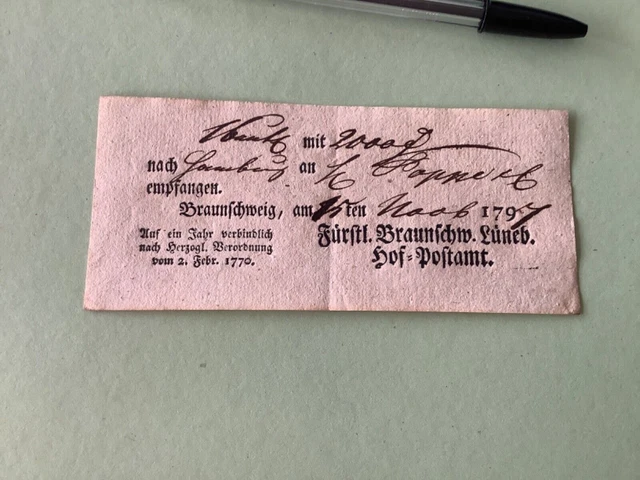 mit 2000
nach Hamburg an
empfangen.
Braunschweig, am 15ten 1797
Auf ein Jahr verbindlich
nach Herzogl. Verordnung
vom 2. Febr. 1770.
Fürstl. Braunschw. Lüneb.
Hof-Postamt.